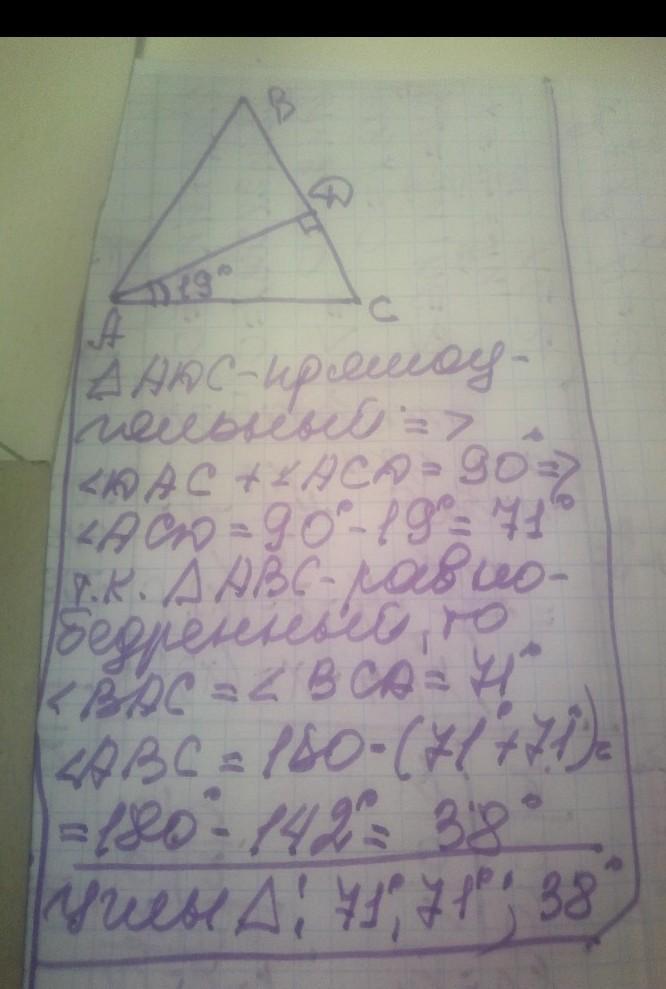 B
D
19°
A
C
△ADC-прямоу-
гольный =>
<DAC + <ACD = 90° =>
<ACD = 90° - 19° = 71°
т.к. △ABC-равно-
бедренный, то
<BAC = <BCA = 71°
<ABC = 180 - (71° + 71°) =
= 180° - 142° = 38°
Углы △: 71°, 71°; 38°